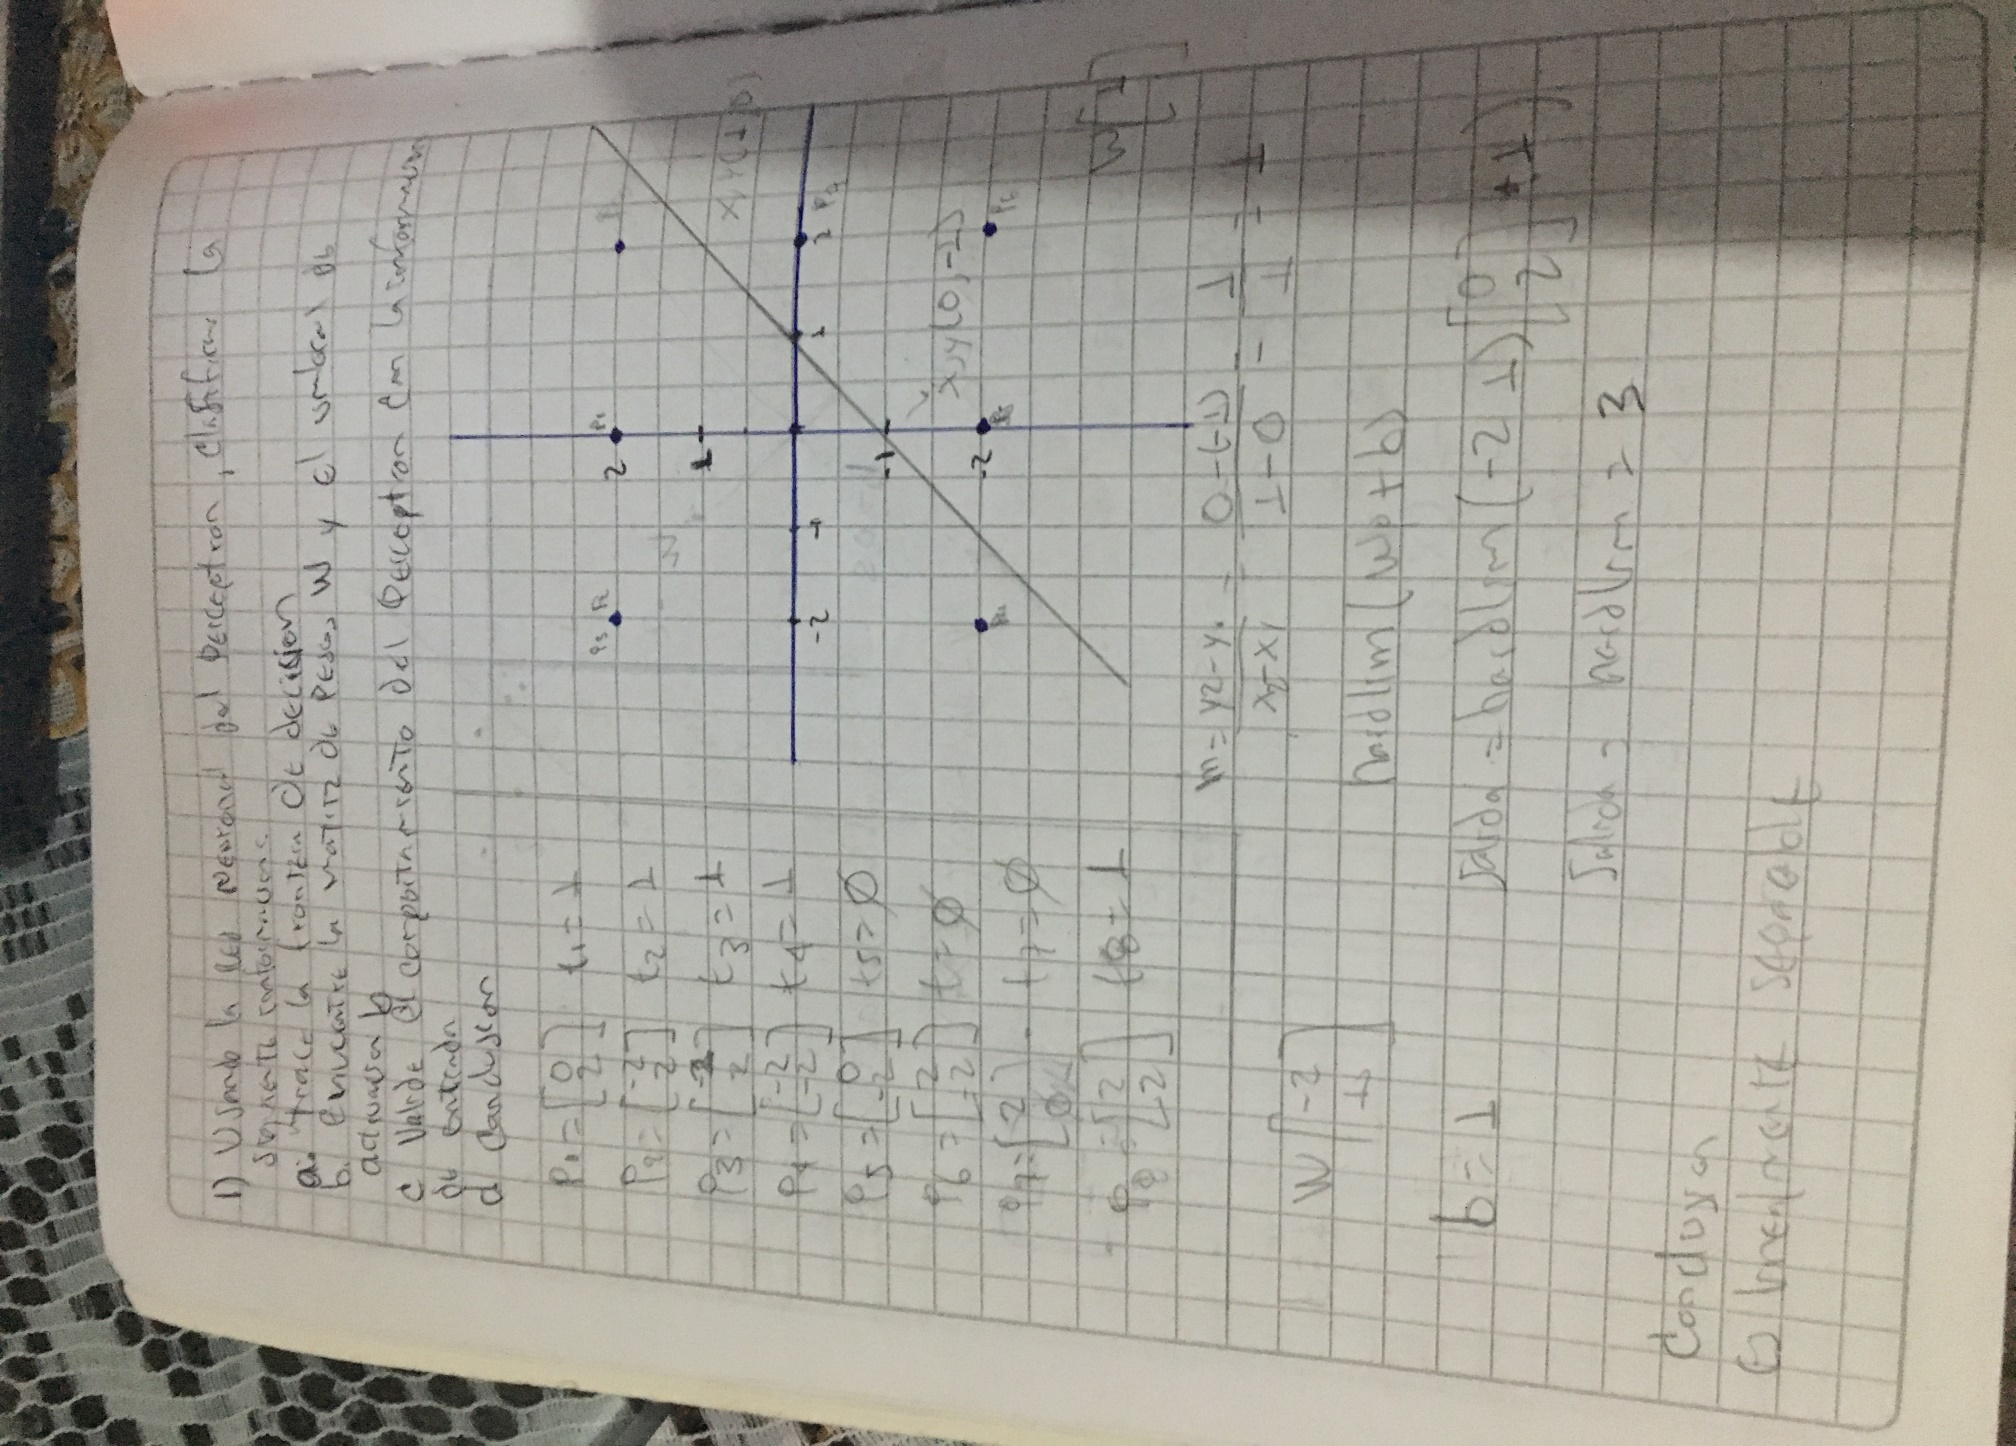 1) Usando la red neuronal del perceptron, clasificar la
siguiente
a. trace la frontera de decision
b. encuentre la matriz de pesos W y el umbral de
c Valide el comportamiento del perceptron con la informacion
de entrada
d Conclusion
P1 = [0 2] t1 = 1
P2 = [-2 2] t2 = 1
P3 = [-2 2] t3 = 1
P4 = [-2 -2] t4 = 1
P5 = [0 -2] t5 = Ø
P6 = [2 -2] t = Ø
P7 = [2 t7 = Ø
P8 = [2 2] t8 = 1
W [-2 1]
b = 1
2
1
-1
-2
-2
-1
1
2
P1
P2
P3
x,y(1,0)
x,y(0,-1)
W
m = y2-y1 / x2-x1 = 0-(-1) / 1-0 = 1/1 = 1
hardlim(Wp+b)
Salida = hardlim(-2 1)[0 2] +1)
Salida = hardlim = 3
Conclusion
Es linealmente separable